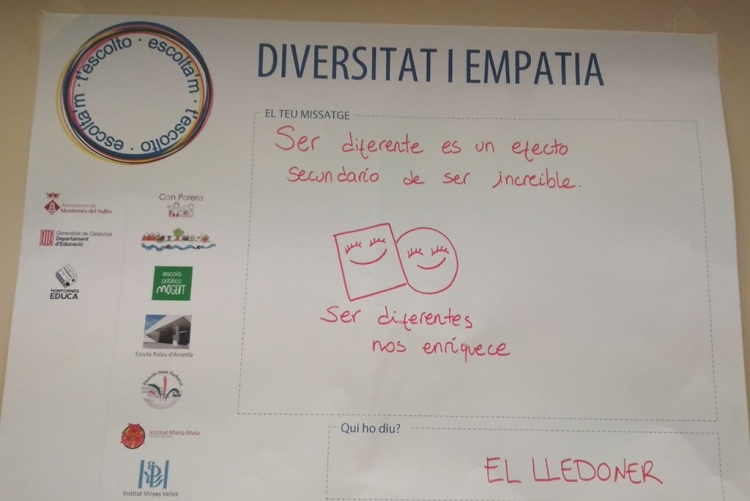 escolta'm · t'escolto · escolta'm · t'escolto ·
DIVERSITAT I EMPATIA
EL TEU MISSATGE
Ser diferente es un efecto
secundario de ser increible.
Ser diferentes
nos enriquece
Qui ho diu?
EL LLEDONER
Ajuntament de
Montornès del Vallès
Generalitat de Catalunya
Departament
d'Educació
MONTORNÈS
EDUCA
Can Parera
escola
pública
MOGENT
Escola Palau d'Ametlla
Institut Marta Mata
Institut Vinyes Velles